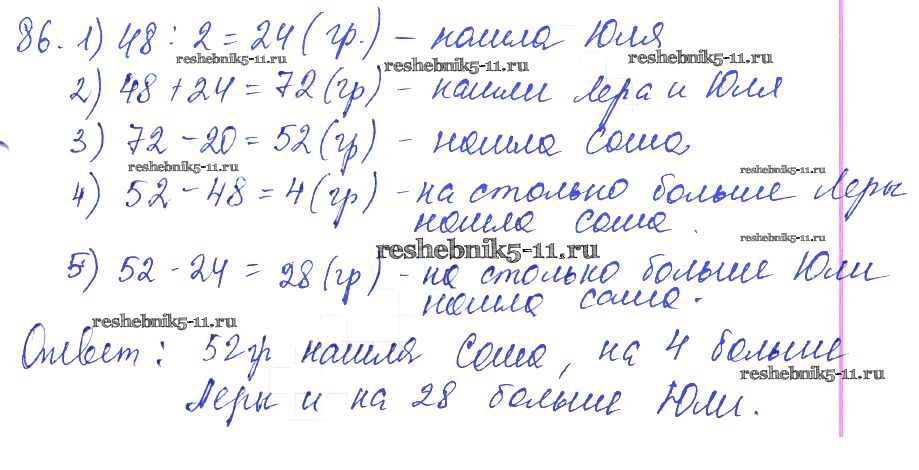 86. 1) 48 : 2 = 24 (гр.) – нашла Юля
reshebnik5-11.ru reshebnik5-11.ru reshebnik5-11.ru
2) 48 + 24 = 72 (гр) – нашли Лера и Юля
3) 72 – 20 = 52 (гр) – нашла Саша
reshebnik5-11.ru reshebnik5-11.ru
4) 52 – 48 = 4 (гр) – на столько больше Леры
нашла Саша.
reshebnik5-11.ru reshebnik5-11.ru
5) 52 – 24 = 28 (гр) – на столько больше Юли
нашла Саша.
reshebnik5-11.ru
Ответ: 52 гр нашля Саша, на 4 больше
reshebnik5-11.ru
Леры и на 28 больше Юли.